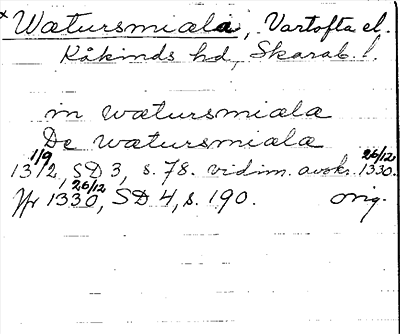 x Wætursmiala, Vartofta el.
Kåkinds hd, Skarab. l.
in wætursmiala
De wætursmiala
1312 1/9, SD 3, s. 78. vidim. avskr. 1330 26/12.
1330 26/12, SD 4, s. 190. orig.